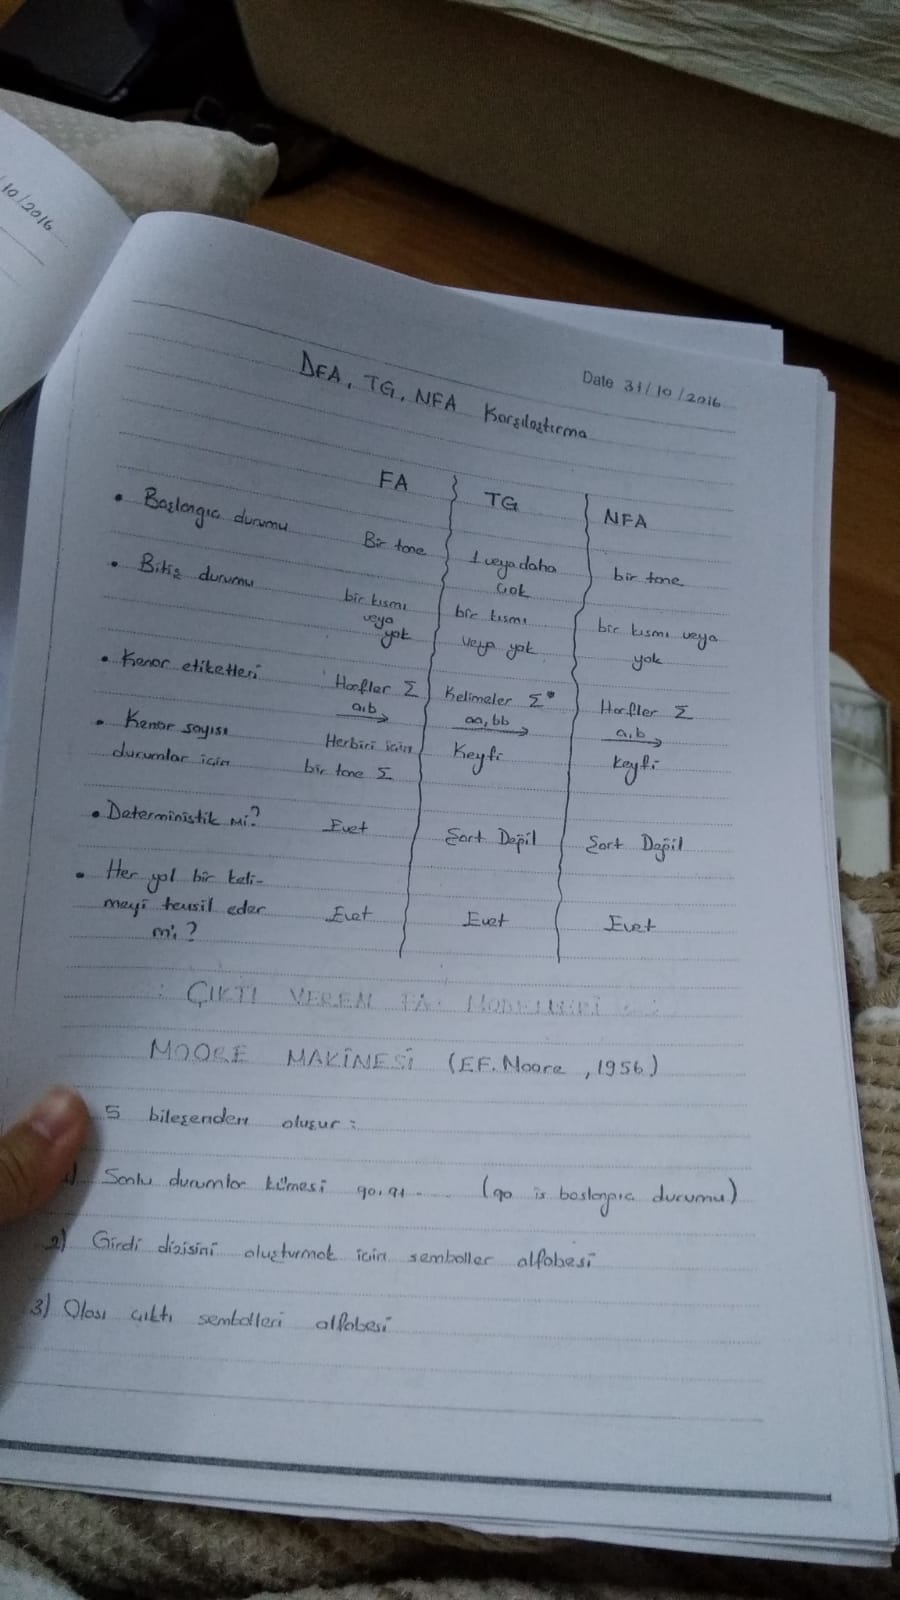 10/2016
Date 31/10/2016
DFA, TG, NFA Karşılaştırma
FA TG NFA
• Başlangıç durumu Bir tane 1 veya daha çok bir tane
• Bitiş durumu bir kısmı veya yok bir kısmı veya yok bir kısmı veya yok
• Kenar etiketleri Harfler Σ a,b Kelimeler Σ* aa, bb Harfler Σ a,b
• Kenar sayısı durumlar için Herbiri için bir tane Σ Keyfi Keyfi
• Deterministik mi? Evet Şart Değil Şart Değil
• Her yol bir keli-
meyi temsil eder mi? Evet Evet Evet
ÇIKTI VEREN FA MODELLERİ
MOORE MAKİNESİ (EF. Moore, 1956)
5 bileşenden oluşur:
1) Sonlu durumlar kümesi q0, q1 ... (q0 is başlangıç durumu)
2) Girdi dizisini oluşturmak için semboller alfabesi
3) Olası çıktı sembolleri alfabesi